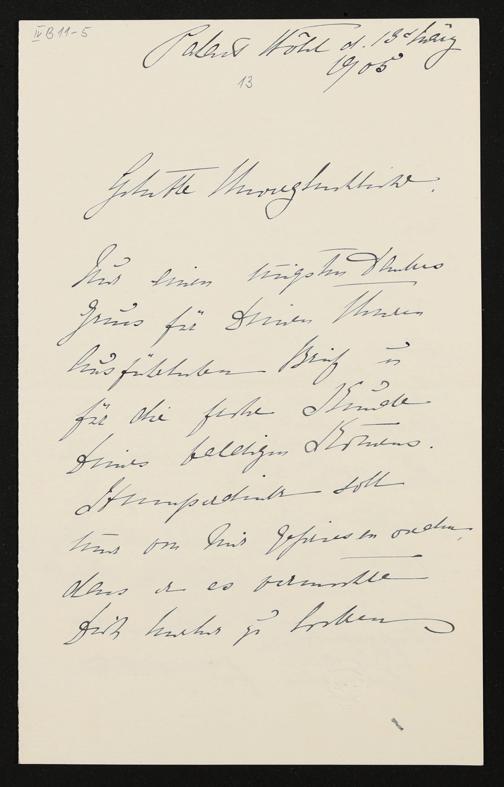 IV B 11-5
Palais Wöhl d. 13ᵗ März
1905
13
Geliebte Unvergleichliche.
Nur einen innigsten Dankes
Gruss für Deinen
ausführlichen Brief u
für die frohe Kunde
Deines baldigen Kom̅ens.
Humperdink soll
von mir gepriesen werden,
dass er es vermochte
Dich hierher zu locken